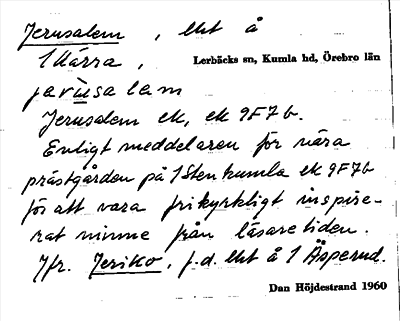 Jerusalem, lht å
1 Kärra,
Lerbäcks sn, Kumla hd, Örebro län
jarusalam
Jerusalem ek, ek 9F7b.
Enligt meddelaren för nära
prästgården på 1 Stenkumla ek 9F7b
för att vara frikyrkligt inspire-
rat minne från läsaretiden.
Jfr. Jeriko, f.d. lht å 1 Äsperud.
Dan Höjdestrand 1960